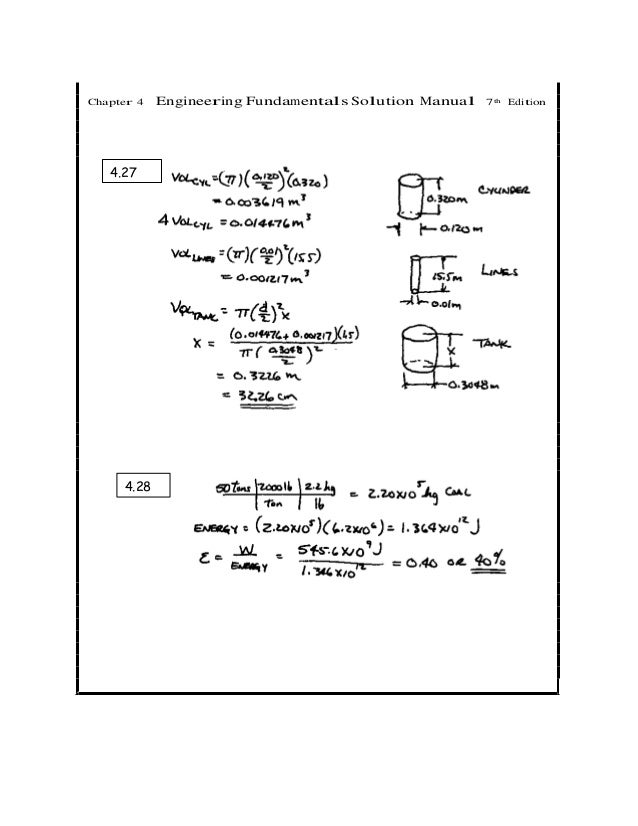 Chapter 4 Engineering Fundamentals Solution Manual 7th Edition
4.27
VOL_CYL = (π)(0.120/2)²(0.320)
= 0.003619 m³
4 VOL_CYL = 0.014476 m³
VOL_LINES = (π)(0.01/2)²(15.5)
= 0.001217 m³
VOL_TANK = π(d/2)²x
x = (0.014476 + 0.001217)(1.5) / π(0.3048/2)²
= 0.3226 m
= 32.26 cm
0.320m
CYLINDER
0.120 m
15.5m
LINES
0.01m
x
TANK
0.3048m
4.28
50 tons | 2000 lb / Ton | 2.2 kg / lb = 2.20x10⁵ kg COAL
ENERGY = (2.20x10⁵)(6.2x10⁶) = 1.364x10¹² J
ε = W / ENERGY = 545.6x10⁹ J / 1.346x10¹² = 0.40 OR 40%